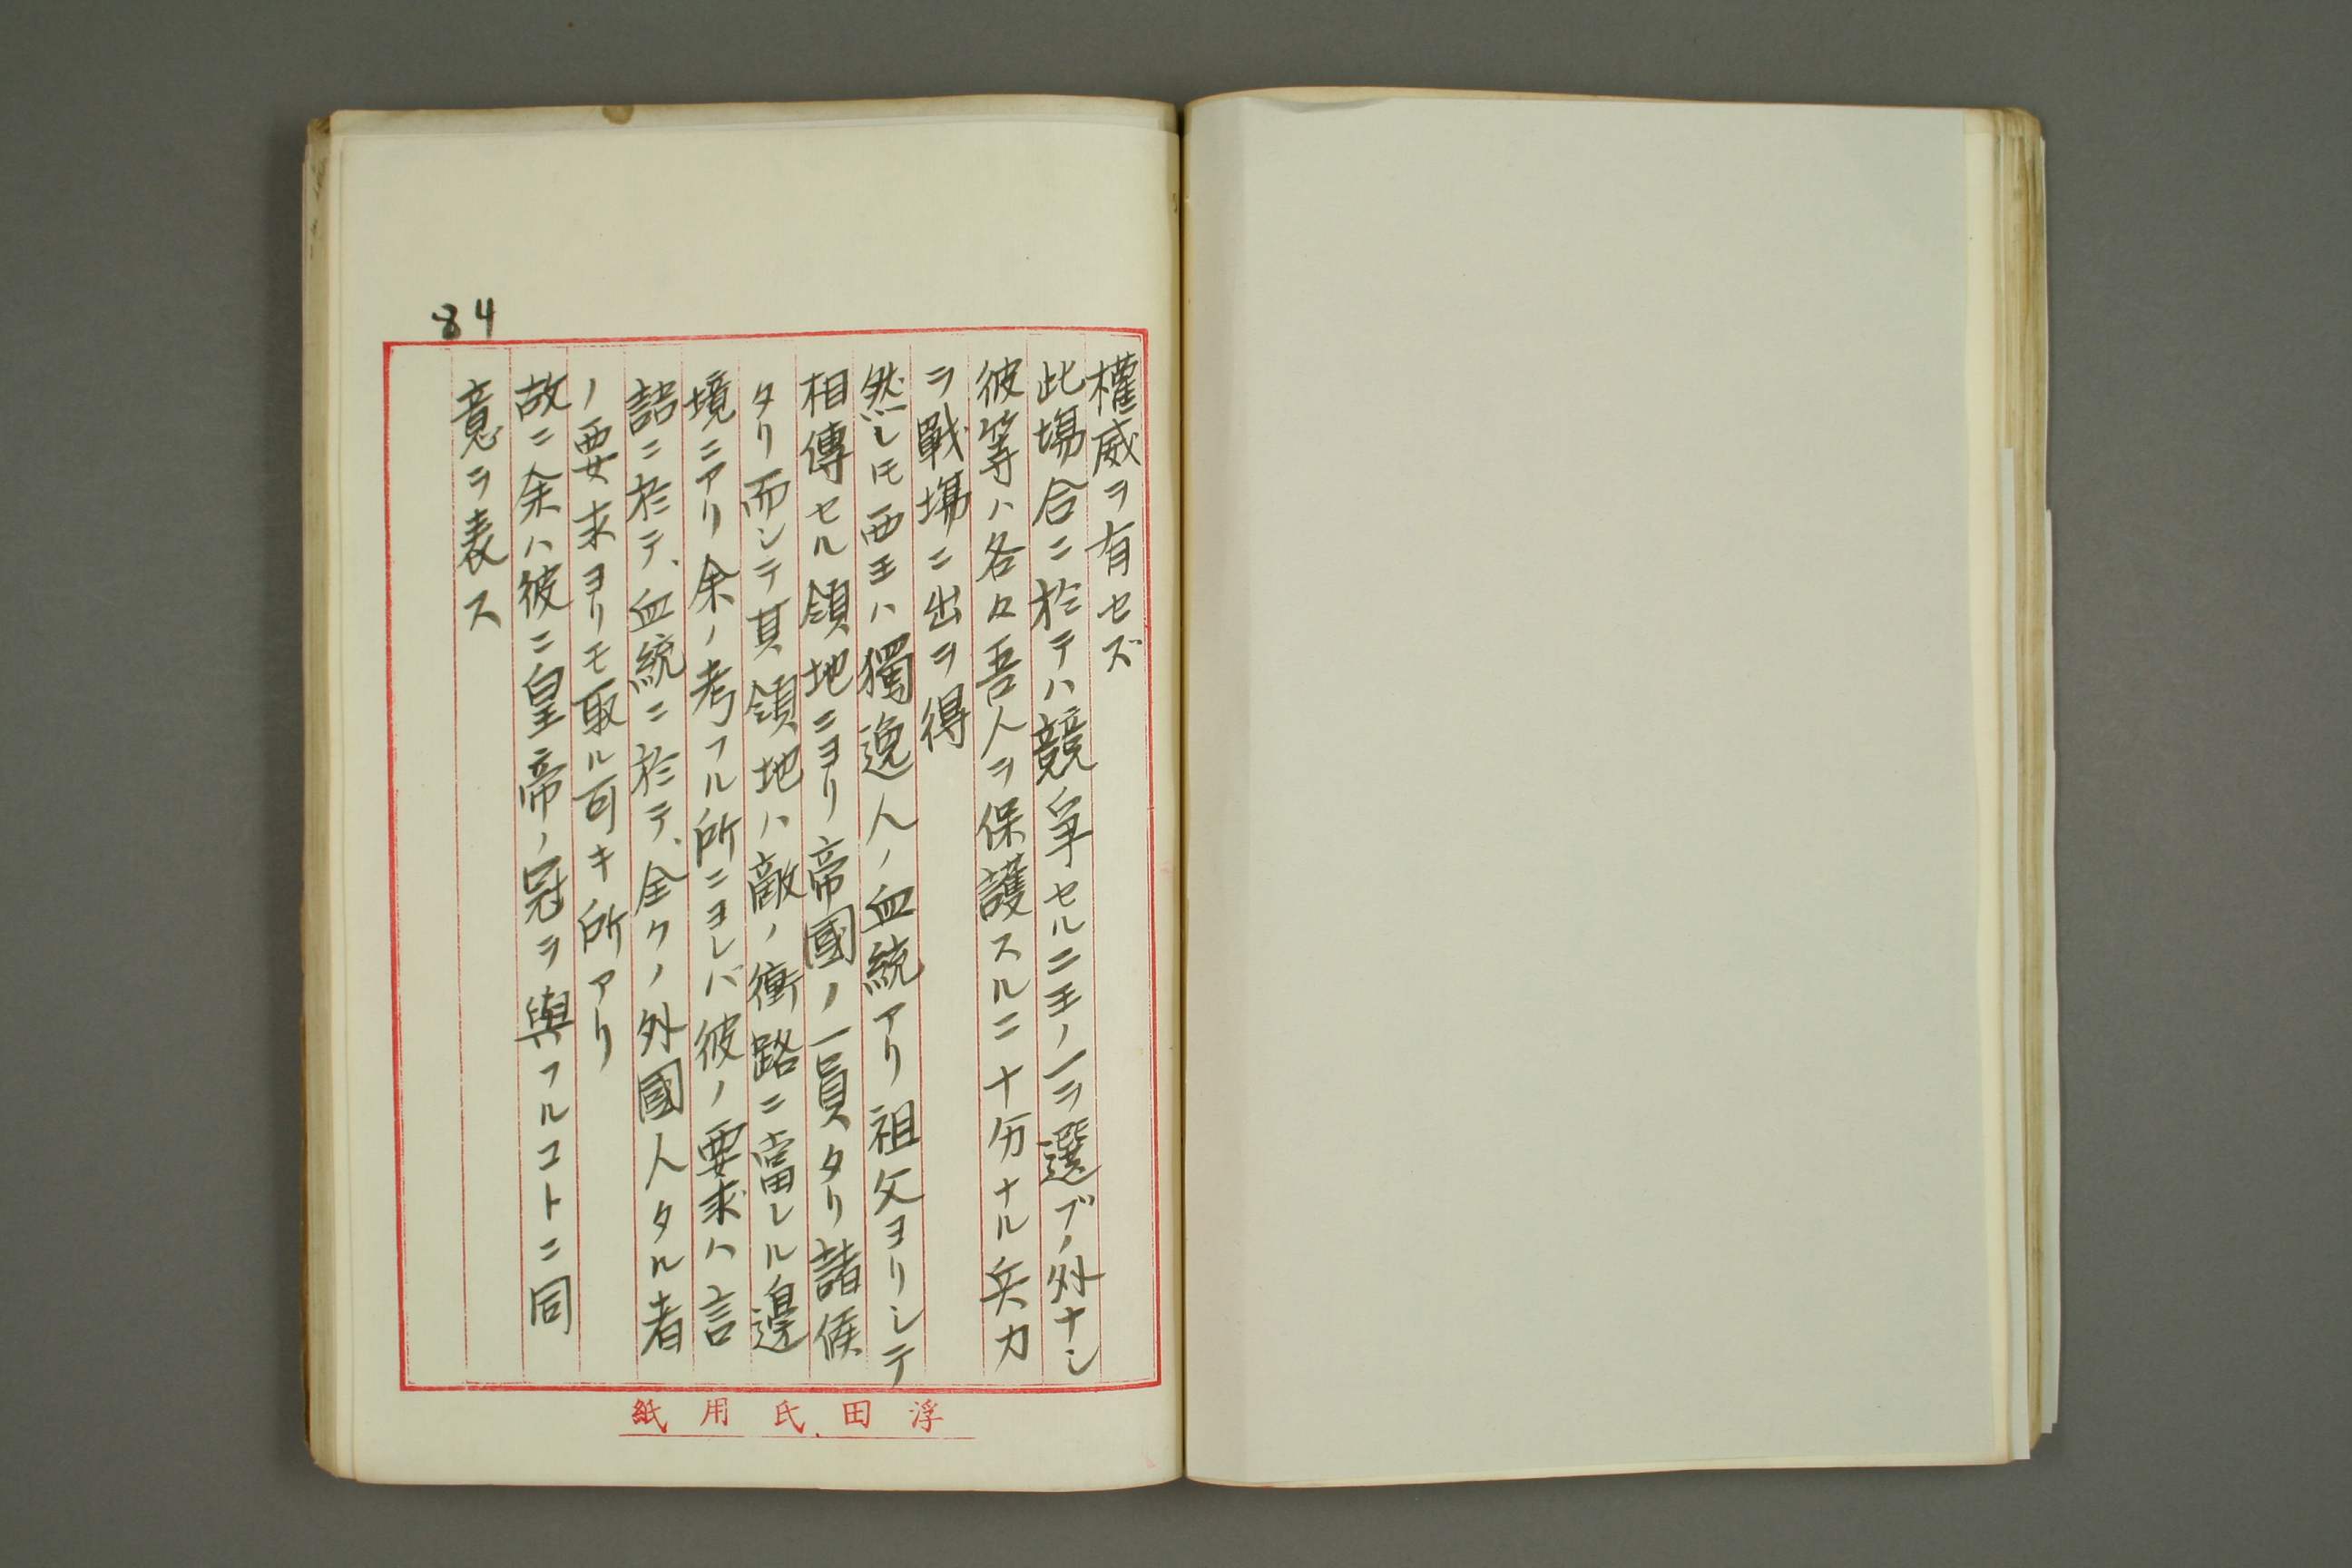 84
權威ヲ有セズ
此場合ニ於テハ競爭セル二王ノ一ヲ選ブノ外ナシ
彼等ハ各々吾人ヲ保護スルニ十分ナル兵力
ヲ戰場ニ出ヲ得
然レ𪜈西王ハ獨逸人ノ血統アリ祖父ヨリシテ
相傳セル領地ニヨリ帝國ノ一員タリ諸候
タリ而シテ其領地ハ敵ノ衝路ニ當レル邊
境ニアリ余ノ考フル所ニヨレバ彼ノ要求ハ言
語ニ於テ、血統ニ於テ、全クノ外國人タル者
ノ要求ヨリモ取ル可キ所アリ
故ニ余ハ彼ニ皇帝ノ冠ヲ與フルコトニ同
意ヲ表ス
浮田氏用紙